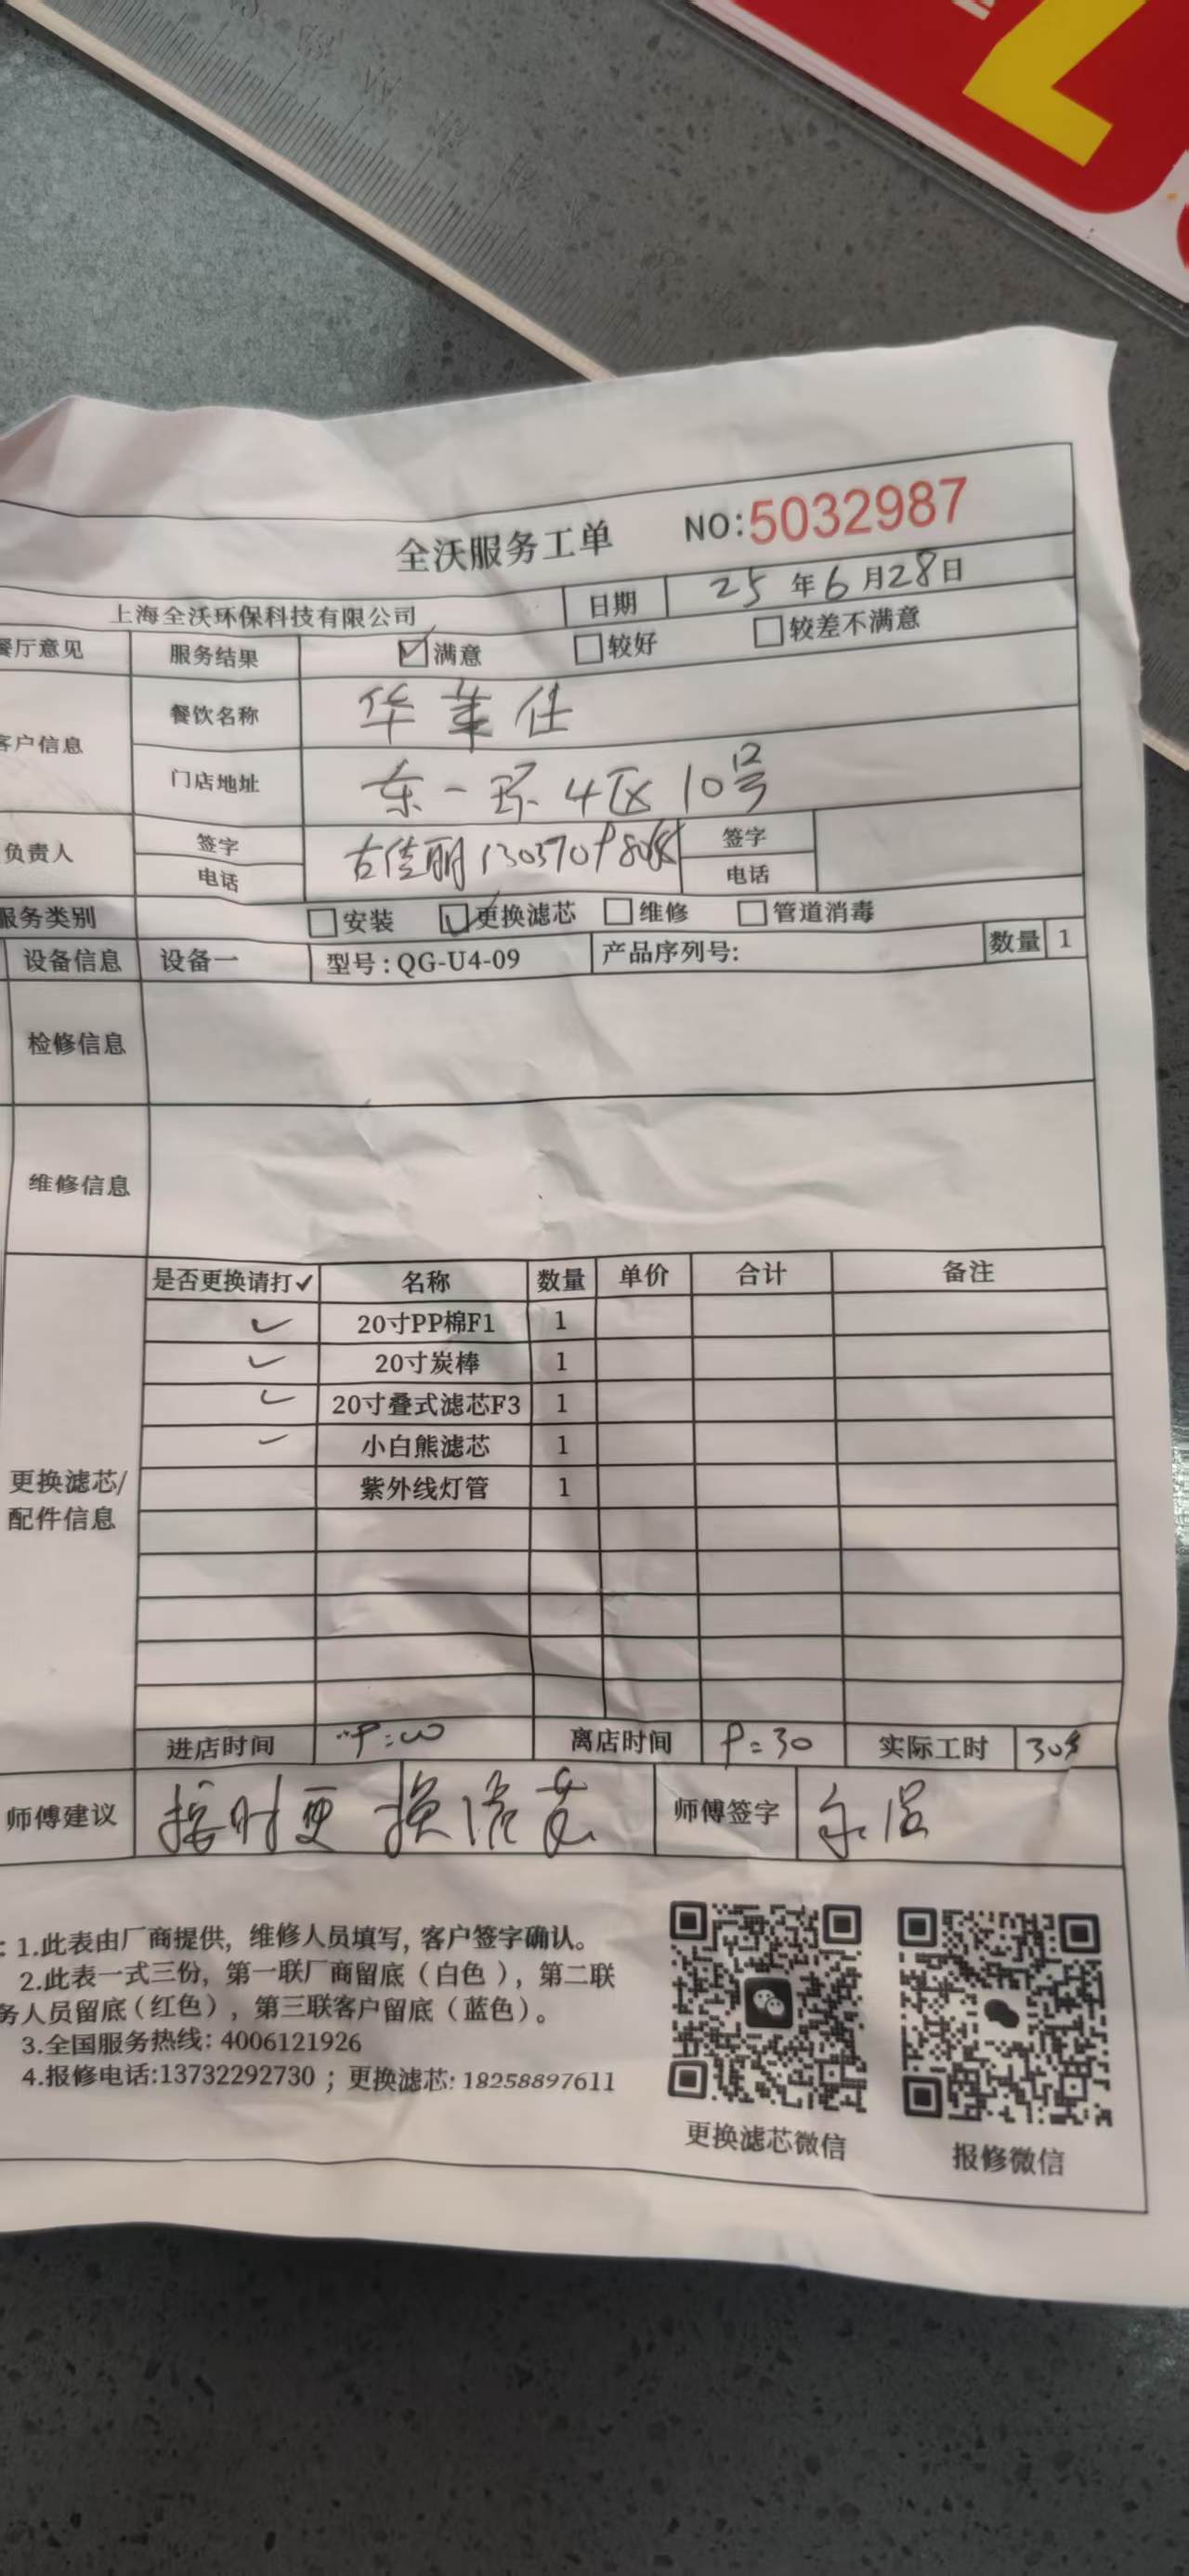 全沃服务工单 NO:5032987
上海全沃环保科技有限公司 日期 25年6月28日
餐厅意见 服务结果 满意 较好 较差不满意
客户信息 餐饮名称 华莱仕
门店地址 东一环4区10号
负责人 签字 古佳丽 签字
电话 电话
服务类别 安装 更换滤芯 维修 管道消毒
设备信息 设备一 型号:QG-U4-09 产品序列号: 数量 1
检修信息
维修信息
是否更换请打✓ 名称 数量 单价 合计 备注
✓ 20寸PP棉F1 1
✓ 20寸炭棒 1
✓ 20寸叠式滤芯F3 1
✓ 小白熊滤芯 1
紫外线灯管 1
更换滤芯/
配件信息
进店时间 离店时间 实际工时
师傅建议 按时更换滤芯 师傅签字
:1.此表由厂商提供, 维修人员填写, 客户签字确认。
2.此表一式三份, 第一联厂商留底(白色), 第二联
务人员留底(红色), 第三联客户留底(蓝色)。
3.全国服务热线: 4006121926
4.报修电话:13732292730 ; 更换滤芯: 18258897611
更换滤芯微信 报修微信